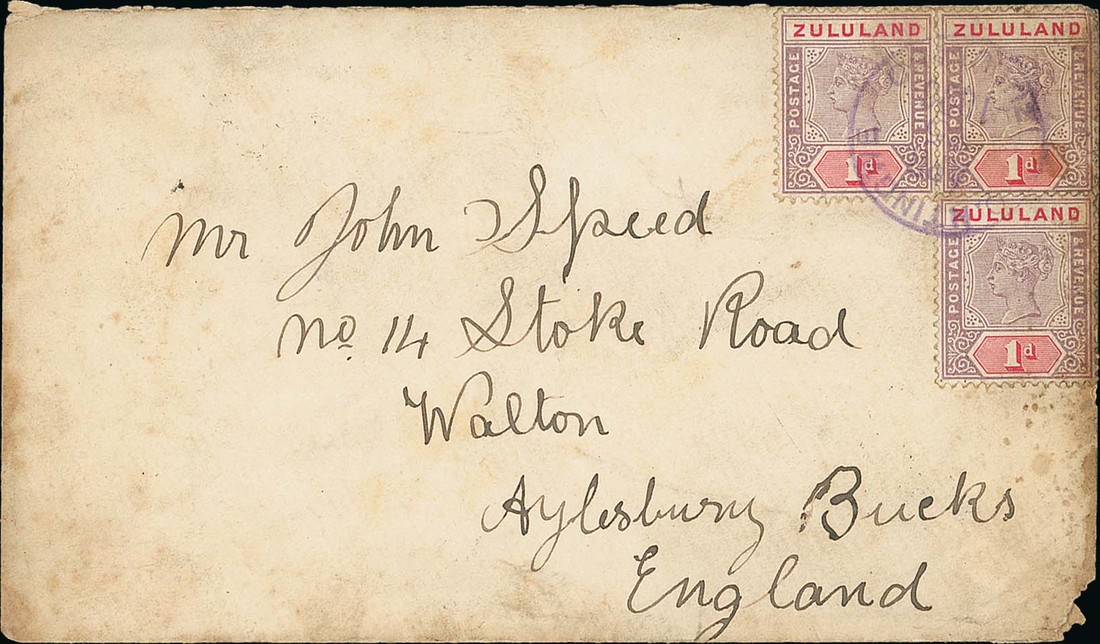 ZULULAND ZULULAND
POSTAGE & REVENUE POSTAGE & REVENUE
1d 1d
ZULULAND
POSTAGE & REVENUE
1d
Mr John Speed
No. 14 Stoke Road
Walton
Aylesbury Bucks
England